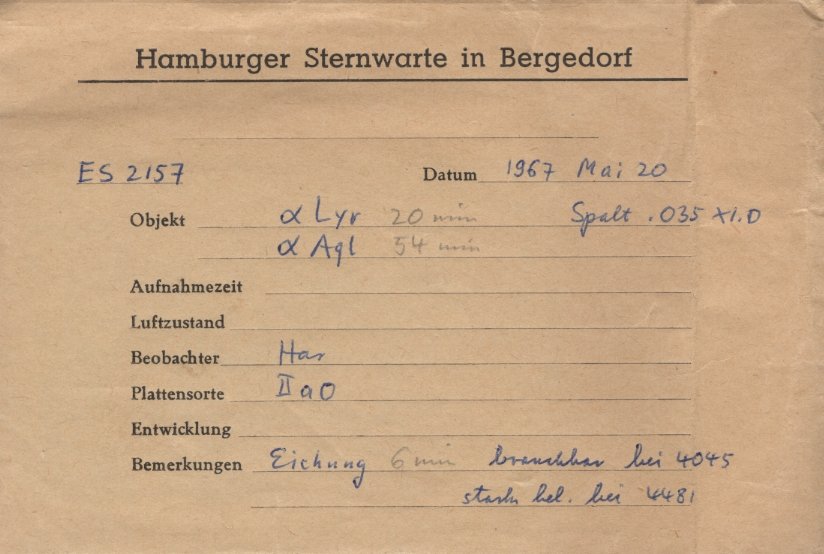 Hamburger Sternwarte in Bergedorf
ES 2157 Datum 1967 Mai 20
Objekt α Lyr 20 min Spalt .035 x 1.0
α Aql 54 min
Aufnahmezeit
Luftzustand
Beobachter Har
Plattensorte IIaO
Entwicklung
Bemerkungen Eichung 6 min brauchbar bei 4045
stark bel. bei 4481